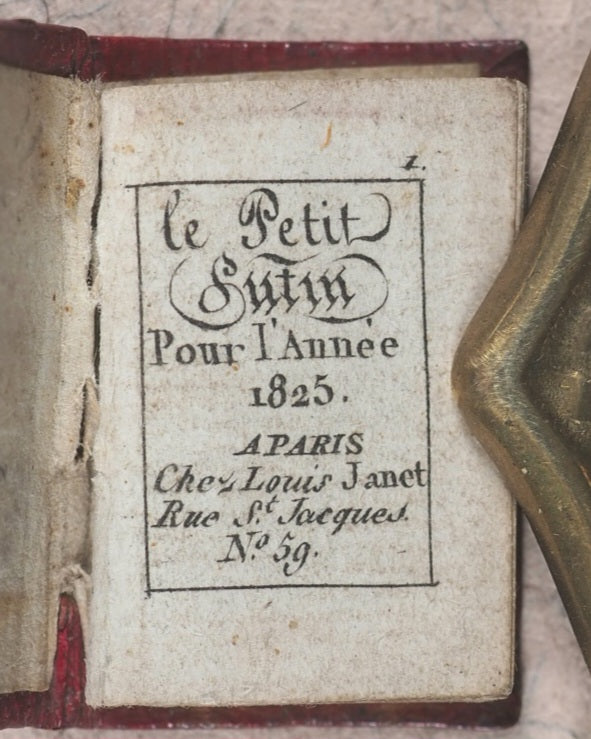 1.
le Petit
Lutin
Pour l'Année
1825.
A PARIS
Chez Louis Janet
Rue St. Jacques.
No. 59.